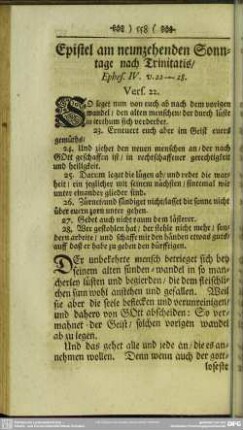 ) 558 (
Epistel am neunzehenden Sonn-
tage nach Trinitatis/
Ephes. IV. v. 22—28.
Vers. 22.
SO leget nun von euch ab nach dem vorigen
wandel/ den alten menschen/ der durch lüste
in irrthum sich verderbet.
23. Erneuert euch aber im Geist eures
gemüths:
24. Und ziehet den neuen menschen an/ der nach
GOtt geschaffen ist/ in rechtschaffener gerechtigkeit
und heiligkeit.
25. Darum leget die lügen ab/ und redet die war-
heit/ ein jeglicher mit seinem nächsten/ sintemal wir
unter einander glieder sind.
26. Zürnet und sündiget nicht/ lasset die sonne nicht
über eurm zorn unter gehen.
27. Gebet auch nicht raum dem lästerer.
28. Wer gestohlen hat/ der stehle nicht mehr/ son-
dern arbeite/ und schaffe mit den händen etwas guts/
auff daß er habe zu geben den dürfftigen.
DEr unbekehrte mensch betrieget sich bey
seinem alten sünden-wandel in so man-
cherley lüsten und begierden/ die dem fleischli-
chen sinn wohl anstehen und gefallen. Weil
sie aber die seele beflecken und verunreinigen/
und dahero von GOtt abscheiden: So ver-
mahnet der Geist/ solchen vorigen wandel
ab zu legen.
Und das gehet alle und jede an/ die es an-
nehmen wollen. Denn wenn auch der gott-
loseste